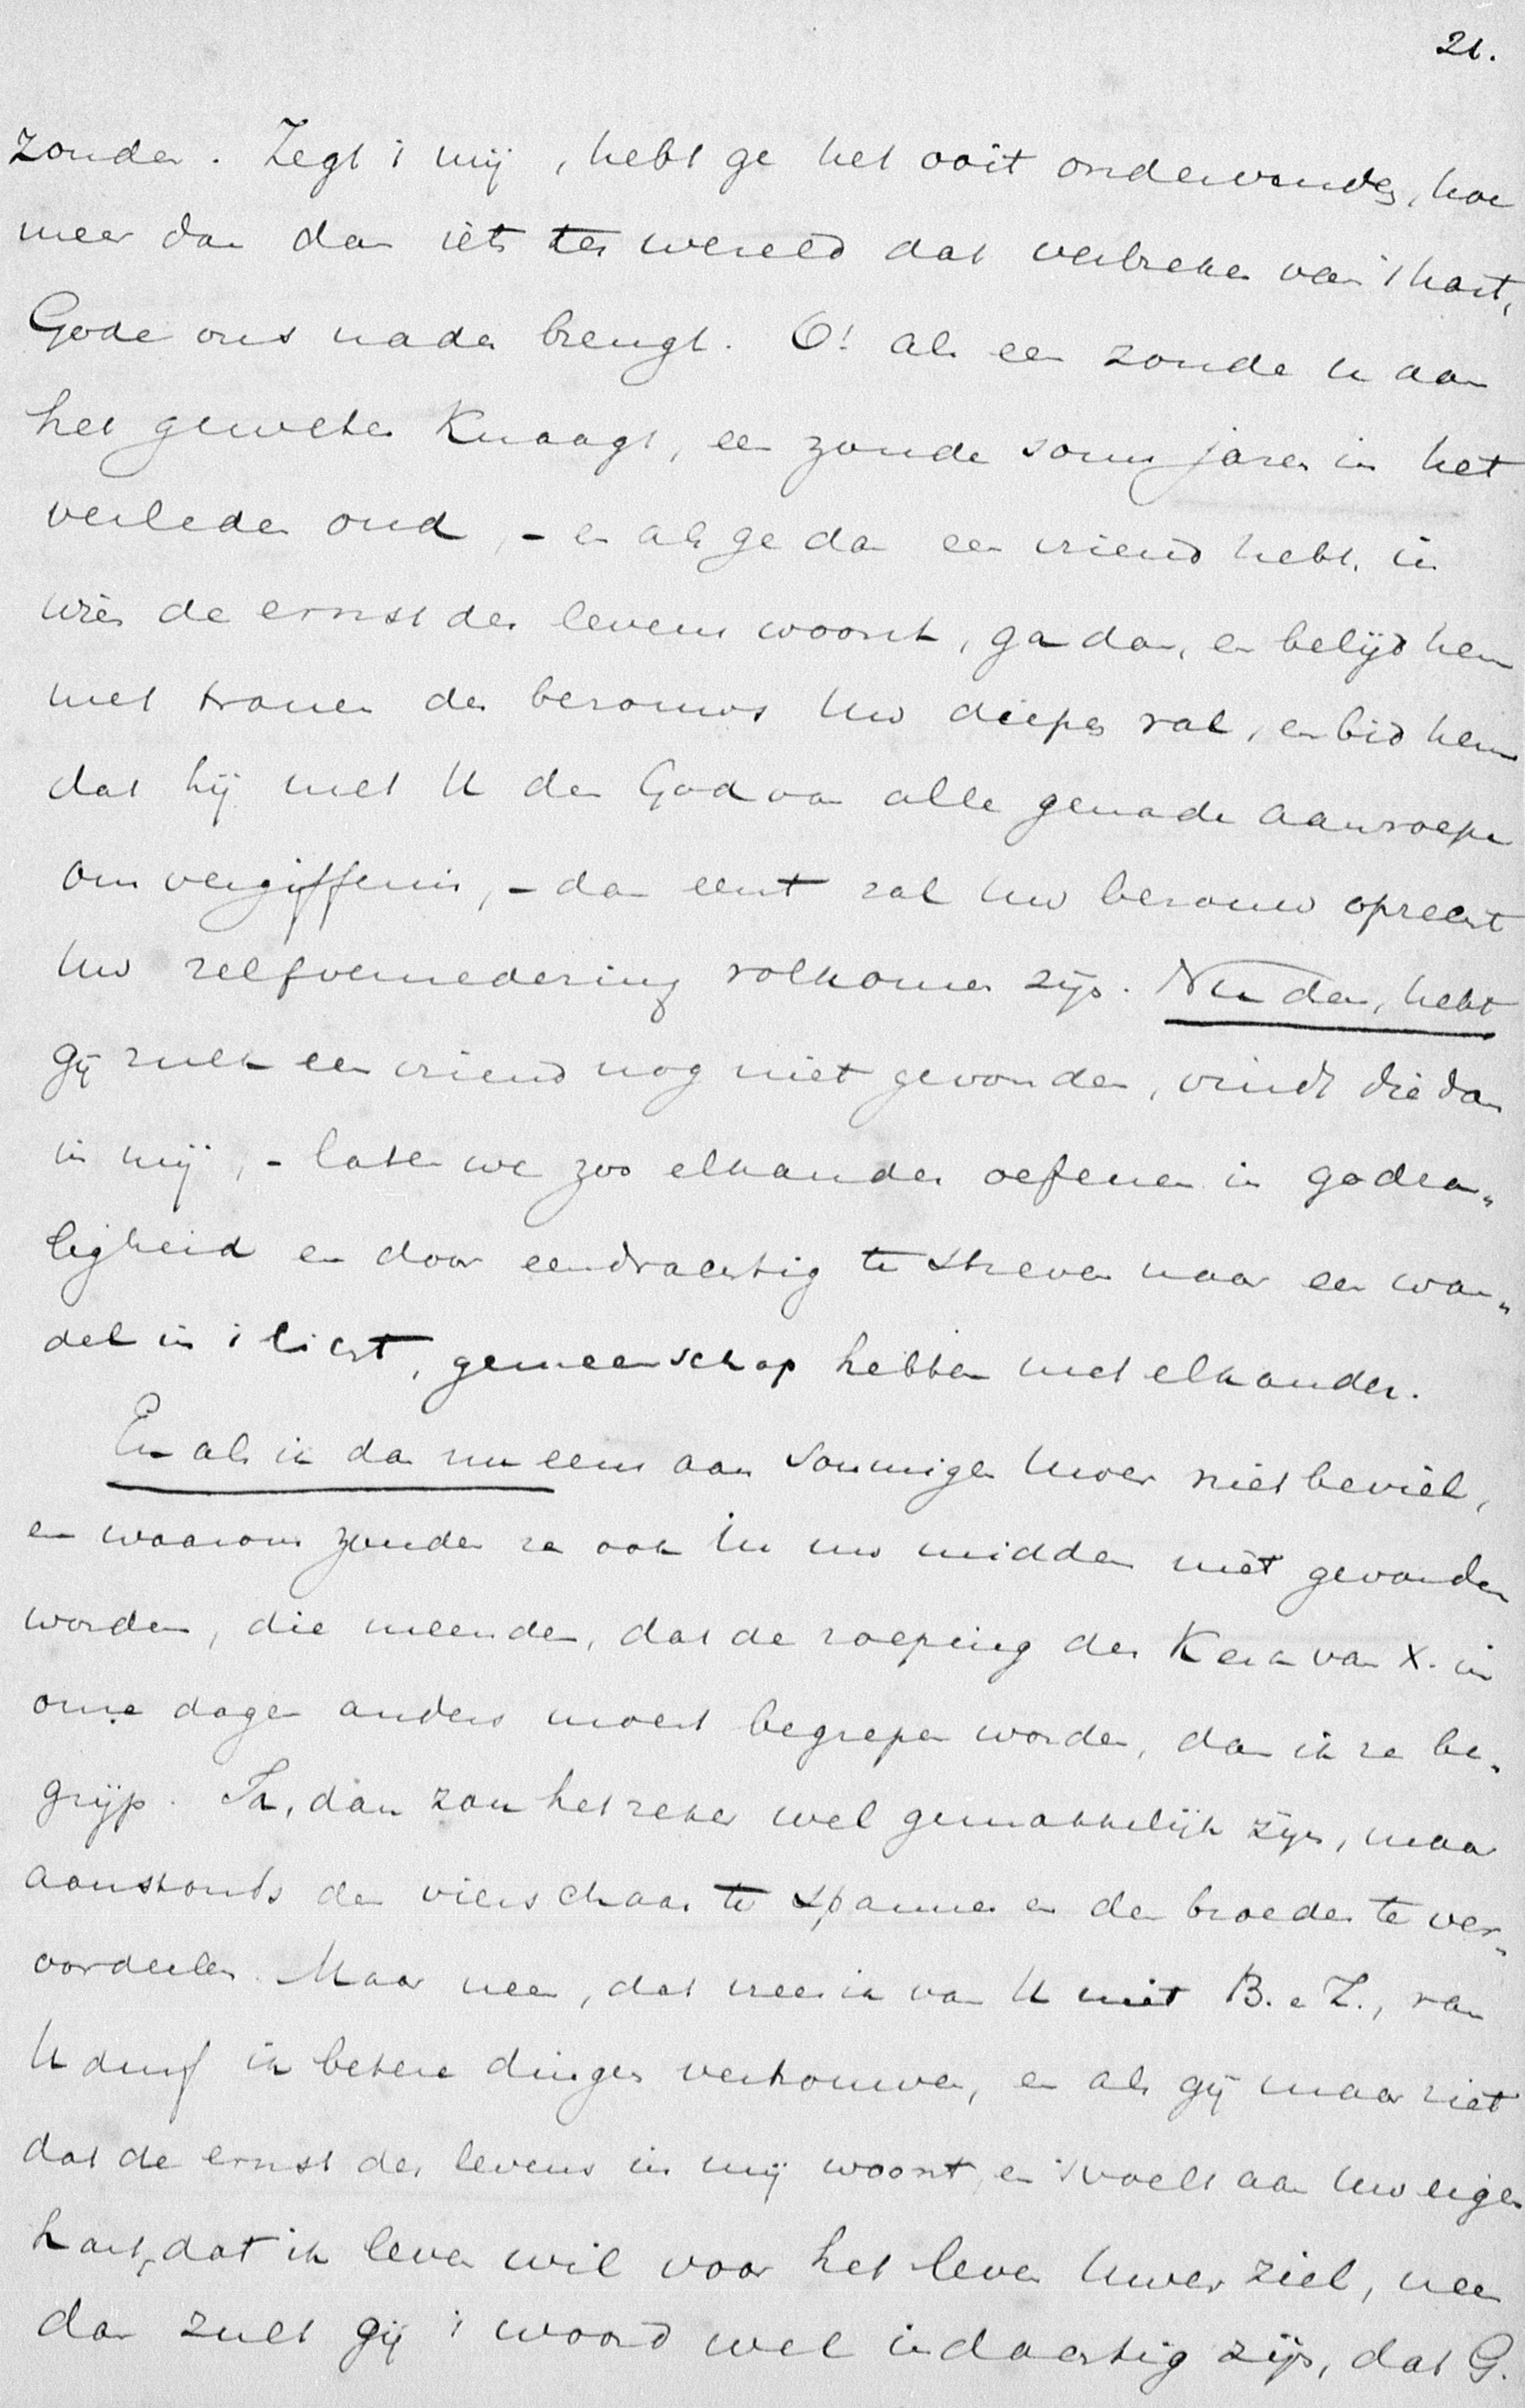 21.
zonden. Zegt 't mij, hebt ge het ooit ondervonden, hoe
meer dan dan iets ter wereld dat verbreken van 't hart,
Gode ons nader brengt. O! als een zonde u aan
het geweten knaagt, een zonde soms jaren in het
verleden oud, - en als ge dan een vriend hebt, in
wien de ernst des levens woont, ga dan, en belijd hem
met tranen des berouws Uw diepen val, en bid hem
dat hij met U den God van alle genade aanroepe
om vergiffenis, - dan eerst zal Uw berouw oprecht
Uw zelfvernedering volkomen zijn. Nu dan, hebt
gij zulk een vriend nog niet gevonden, vindt die dan
in mij, - laten we zoo elkander oefenen in godza„
ligheid en door eendrachtig te streven naar een wan„
del in 't licht, gemeenschap hebben met elkander.
En als ik dan nu eens aan sommigen Uwer niet beviel,
en waarom zouden ze ook in uw midden niet gevonden
worden, die meenden, dat de roeping der Kerk van X. in
onze dagen anders moest begrepen worden, dan ik ze be„
grijp. Ja, dan zou het zeker wel gemakkelijk zijn, maar
aanstonds de vierschaar te spannen en den broeder te ver„
oordeelen. Maar neen, dat vrees ik van U niet B. e Z., van
U durf ik betere dingen vertrouwen, en als gij maar ziet
dat de ernst des levens in mij woont, en 't voelt aan Uw eigen
hart, dat ik leven wil voor het leven Uwer ziel, neen
dan zult gij 't woord wel indachtig zijn, dat G.